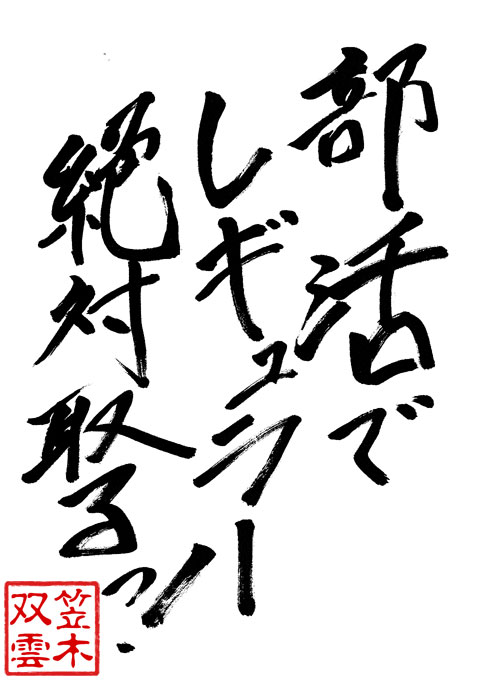 部活で
レギュラー
絶対取るッ!
笠木
双雲